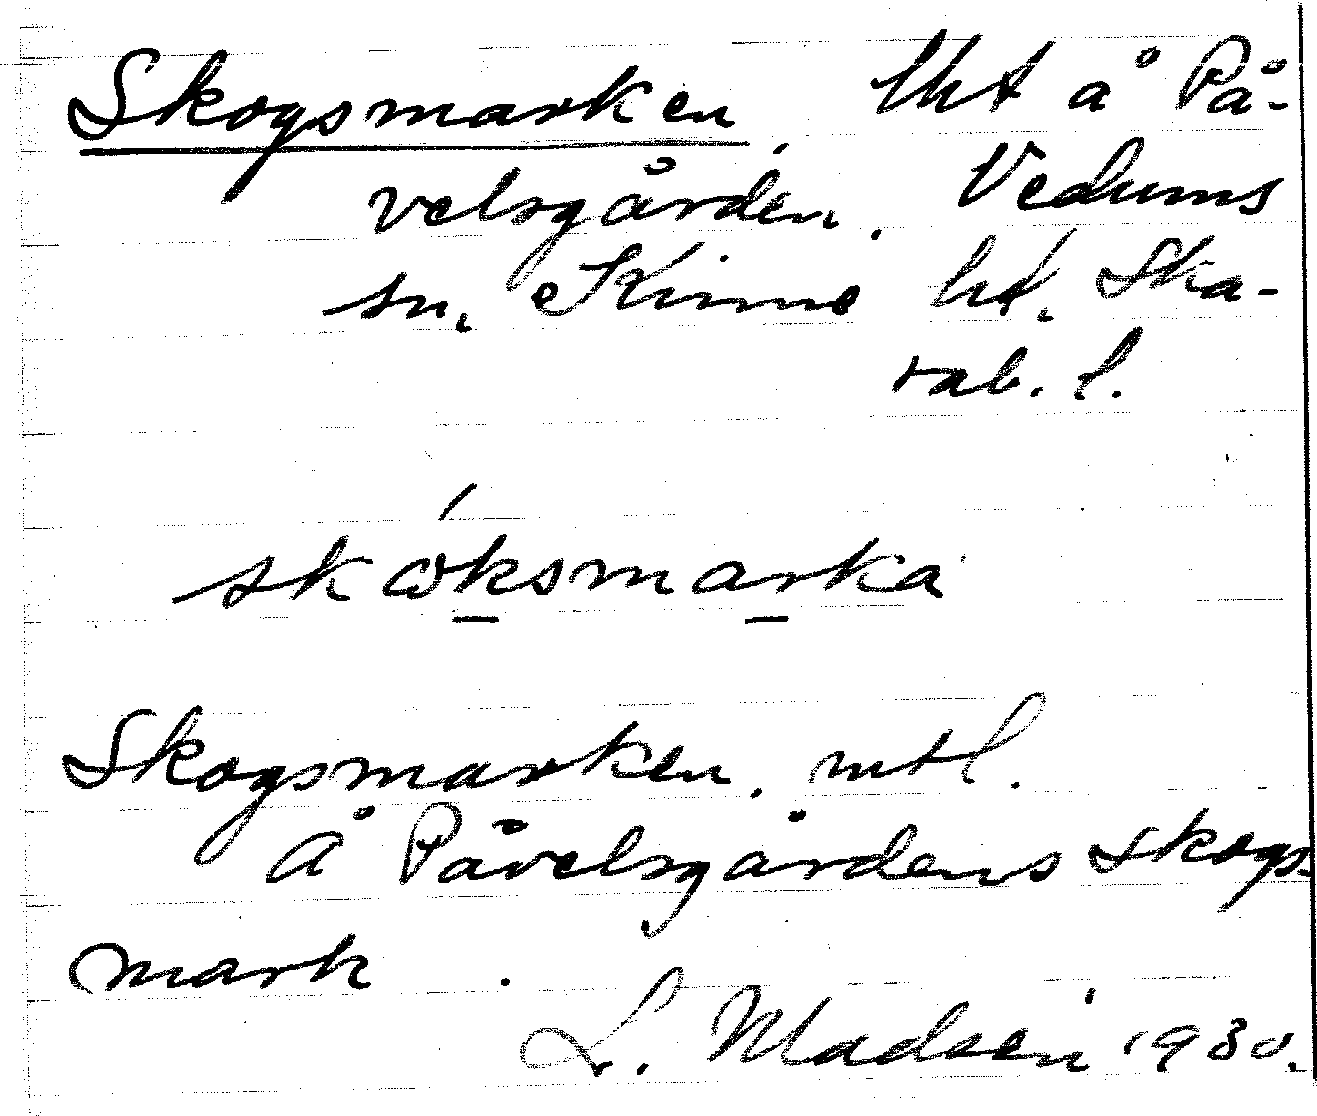 Skogsmarken, lht å På-
velsgården. Vedums
sn. Kinne hd. Ska-
rab. l.
skωksmarka
Skogsmarken. mtl.
å Påvelsgårdens skogs-
mark.
L. Madsén 1930.